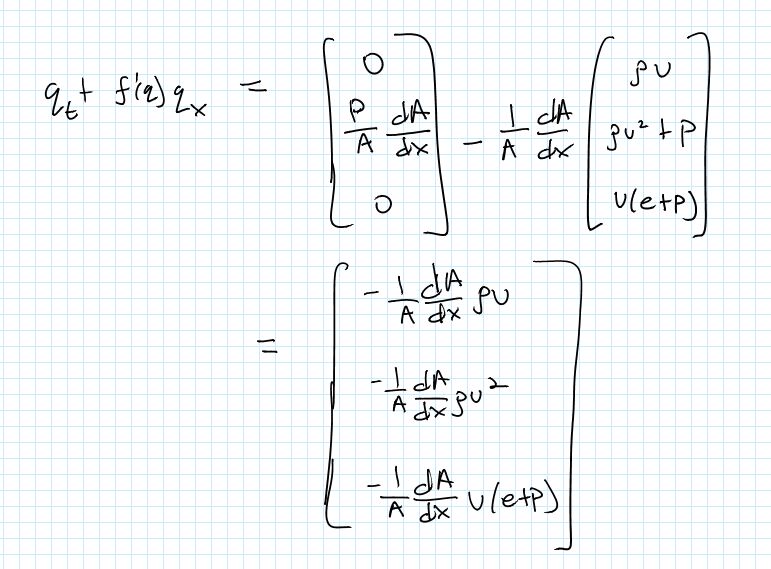 q_t + f'(q) q_x = [ 0 ; P/A dA/dx ; 0 ] - 1/A dA/dx [ ρu ; ρu² + P ; u(e+P) ]
= [ -1/A dA/dx ρu ; -1/A dA/dx ρu² ; -1/A dA/dx u(e+P) ]